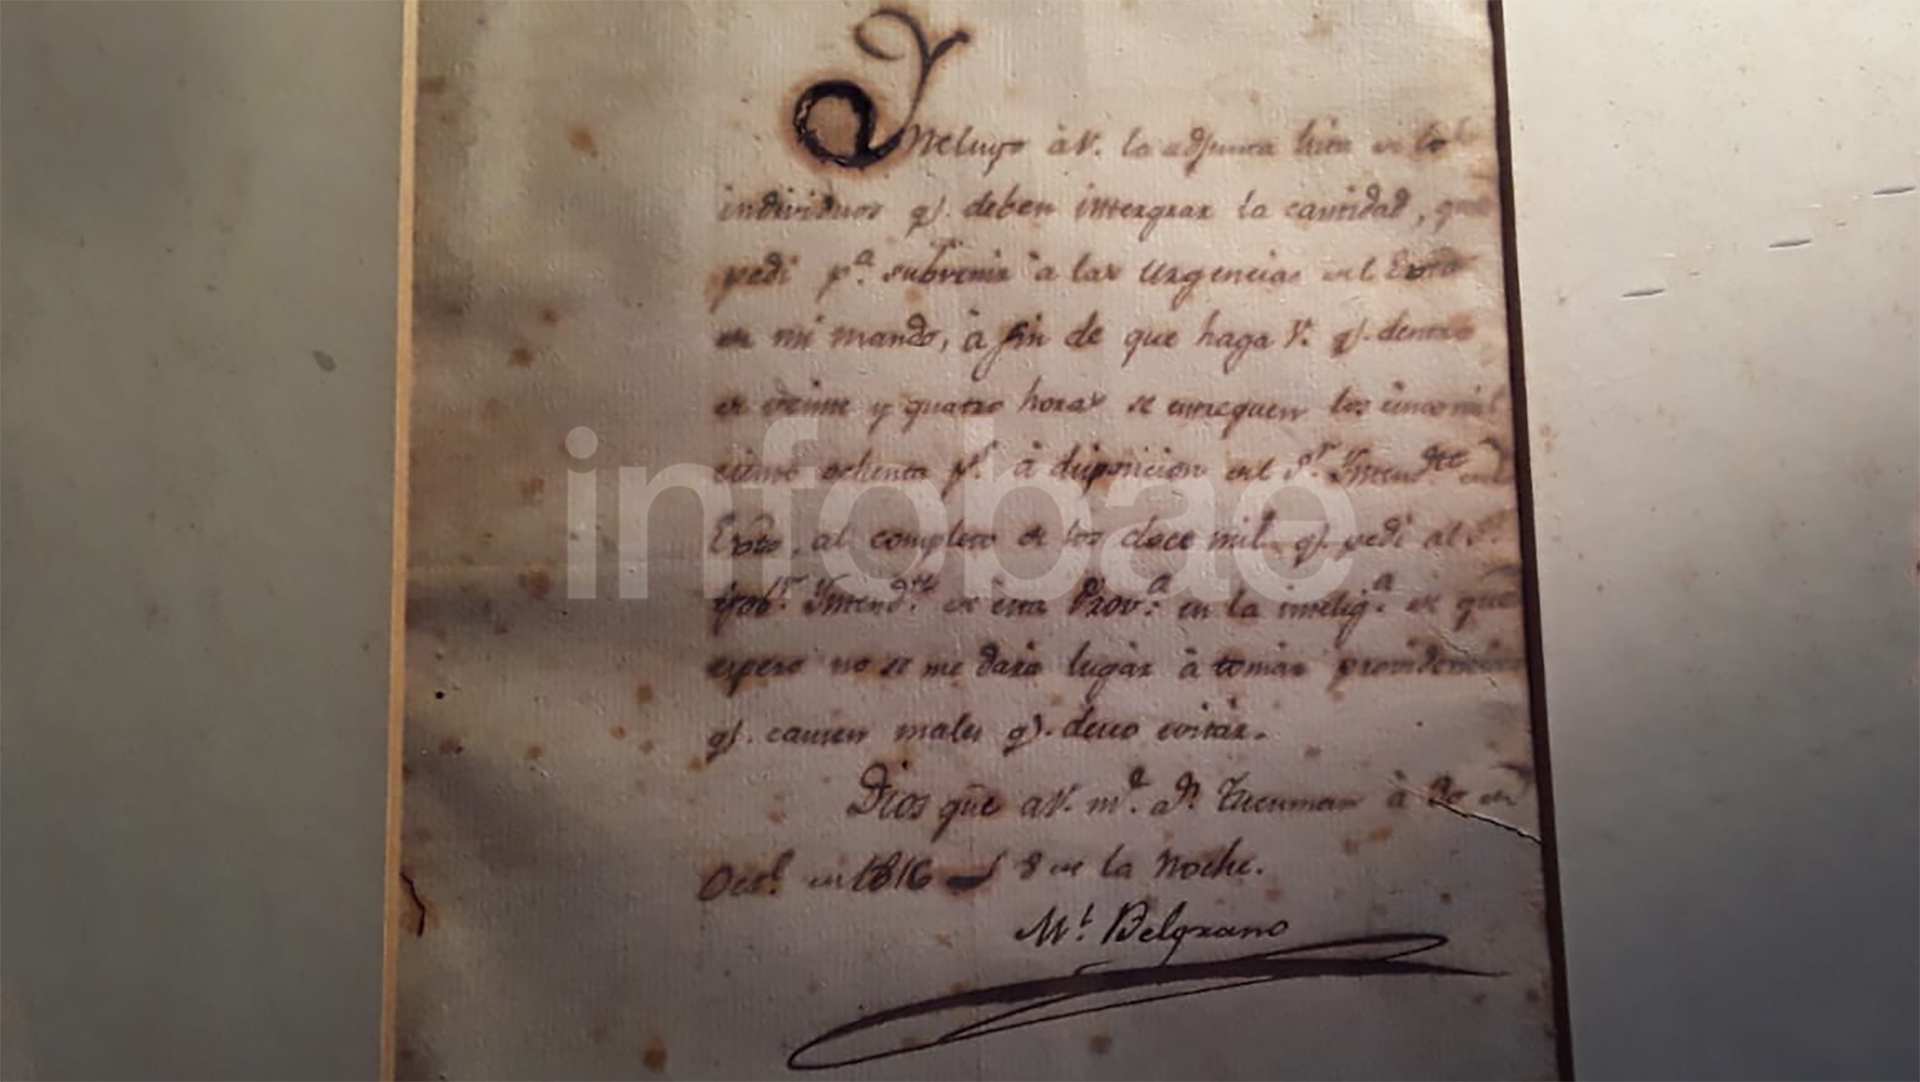 Yncluyo à V. la adjunta lista de los
individuos q.e deben intergrar la cantidad, que
pedi p.a subvenir à las urgencias del Exto
de mi mando, à fin de que haga V. q.e dentro
de veinte y quatro horas se entreguen los cinco mil
ciento ochenta p.s à disposicion del S.r Intend.te del
Exto, al completo de los doce mil q.e pedi al S.or
Gob.r Intend.te de esta Prov.a en la intelig.a de que
espero no se me dara lugar à tomar providencias
q.e causen males q.e deseo evitar.
Dios gue a V. m.s a.s Tucuman à de
Oct.e de 1816 8 de la Noche.
M.l Belgrano
infobae